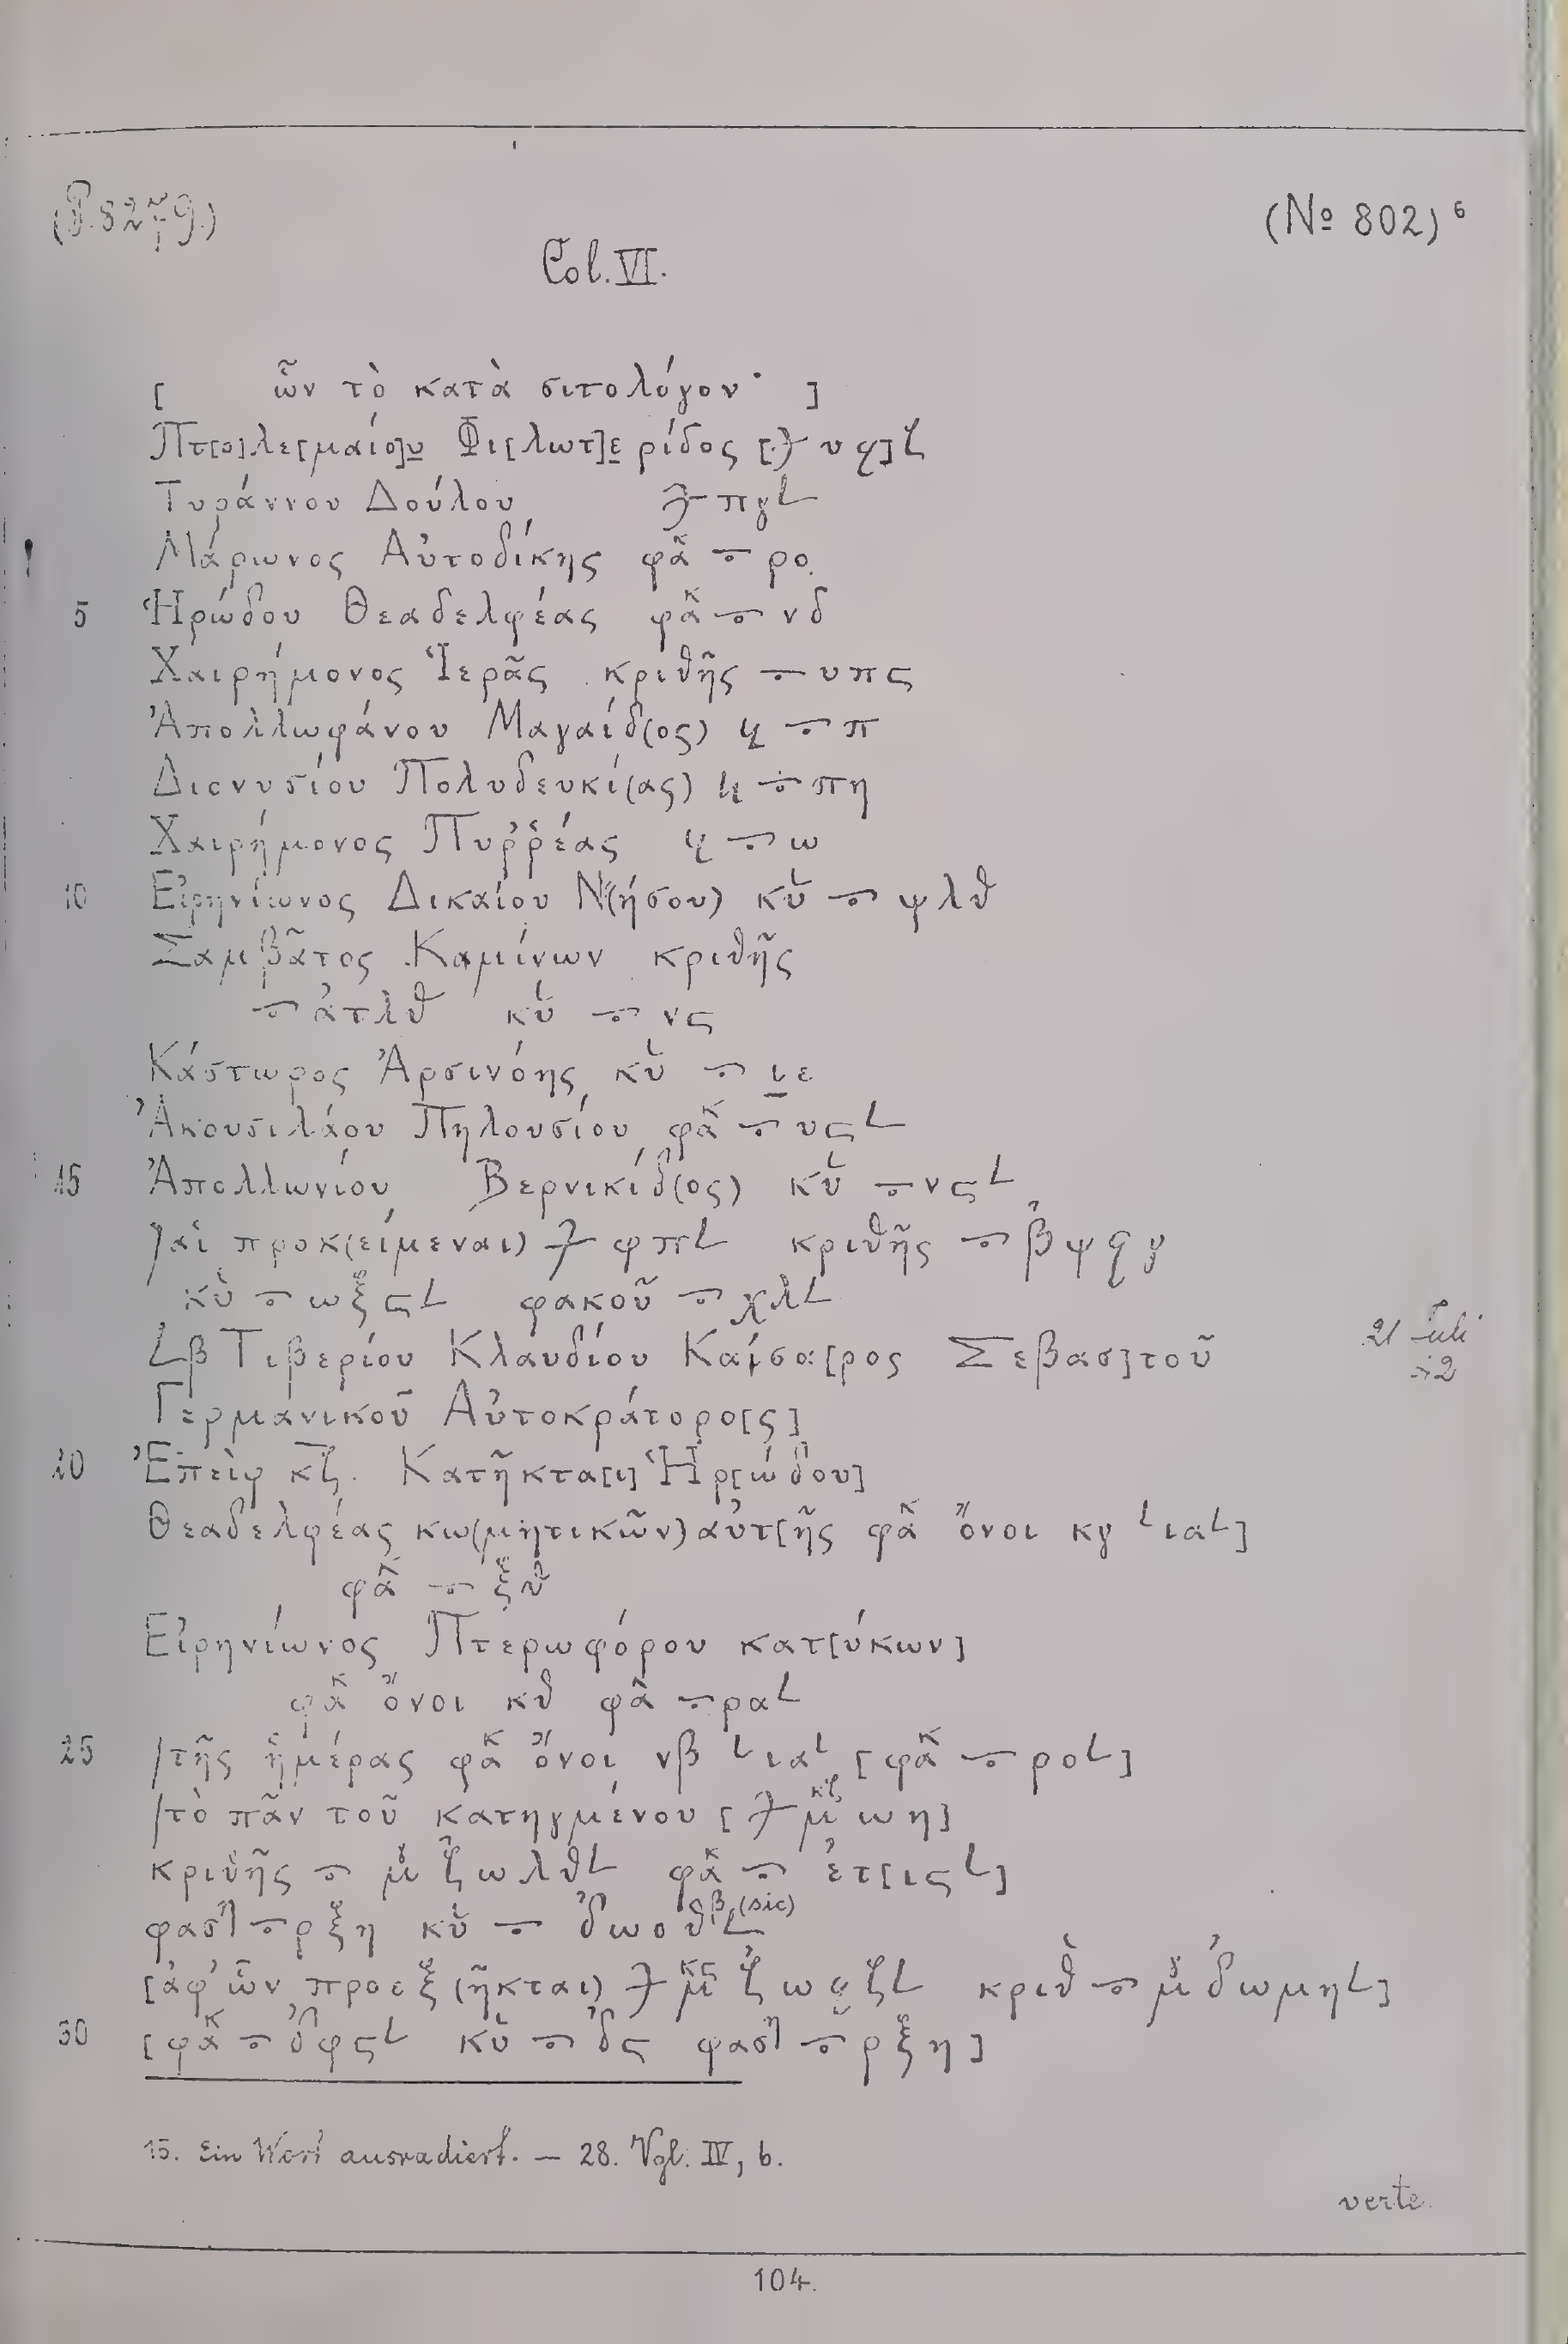 (P. 8279.)
(№ 802) 6
Col. VI.
[ ὧν τὸ κατὰ σιτολόγον· ]
Πτ[ο]λε[μαίο]υ Φι[λωτ]ερίδος [𐅾 υϙ]ζ
Τυράννου Δούλου 𐅾 πγ𐅵
Μάρωνος Αὐτοδίκης φακ ⨪ ρο
5 Ἡρώδου Θεαδελφέας φακ ⨪ νδ
Χαιρήμονος Ἱερᾶς κριθῆς ⨪ υπϛ
Ἀπολλωφάνου Μαγαίδ(ος) ⨪ π
Διονυσίου Πολυδευκί(ας) ⨪ πη
Χαιρήμονος Πυῤῥέας ⨪ ω
10 Εἰρηνίωνος Δικαίου Ν(ήσου) κυ ⨪ ψλθ
Σαμβᾶτος Καμίνων κριθῆς
⨪ ἀτλθ κυ ⨪ νϛ
Κάστωρος Ἀρσινόης κυ ⨪ ιε
Ἀκουσιλάου Πηλουσίου φακ ⨪ υϛ𐅵
15 Ἀπολλωνίου Βερνικίδ(ος) κυ ⨪ νϛ𐅵
/αἱ προκ(είμεναι) 𐅾 φπ𐅵 κριθῆς ⨪ βψϙγ
κυ ⨪ ωξϛ𐅵 φακοῦ ⨪ χλ𐅵
𐅹β Τιβερίου Κλαυδίου Καίσα[ρος Σεβασ]τοῦ
21 Juli 42
Γερμανικοῦ Αὐτοκράτορο[ς]
20 Ἐπεὶφ κζ. Κατῆκτα[ι] Ἡρ[ώδου]
Θεαδελφέας κω(μητικῶν) αὐτ[ῆς φακ ὄνοι κγ 𐅵ια𐅵]
φακ ⨪ ξθ
Εἰρηνίωνος Πτερωφόρου κατ[ύκων]
φακ ὄνοι κθ φα ⨪ ρα𐅵
25 /τῆς ἡμέρας φακ ὄνοι νβ 𐅵ια𐅵 [φακ ⨪ ρο𐅵]
/τὸ πᾶν τοῦ κατηγμένου [𐅾 μκζ ωη]
κριθῆς ⨪ μγ ζωλθ𐅵 φακ ⨪ ἐτ[ιϛ𐅵]
φασηλ ⨪ ρξη κυ ⨪ δωοθβ(sic)𐅵
[ἀφ' ὧν προεξ(ῆκται) 𐅾 μκϛ ζωϙζ𐅵 κριθ ⨪ μγ δωμη𐅵]
30 [φακ ⨪ δφϛ𐅵 κυ ⨪ δϛ φασηλ ⨪ ρξη]
15. Ein Wort ausradiert. — 28. Vgl. IV, 6.
verte.
104.